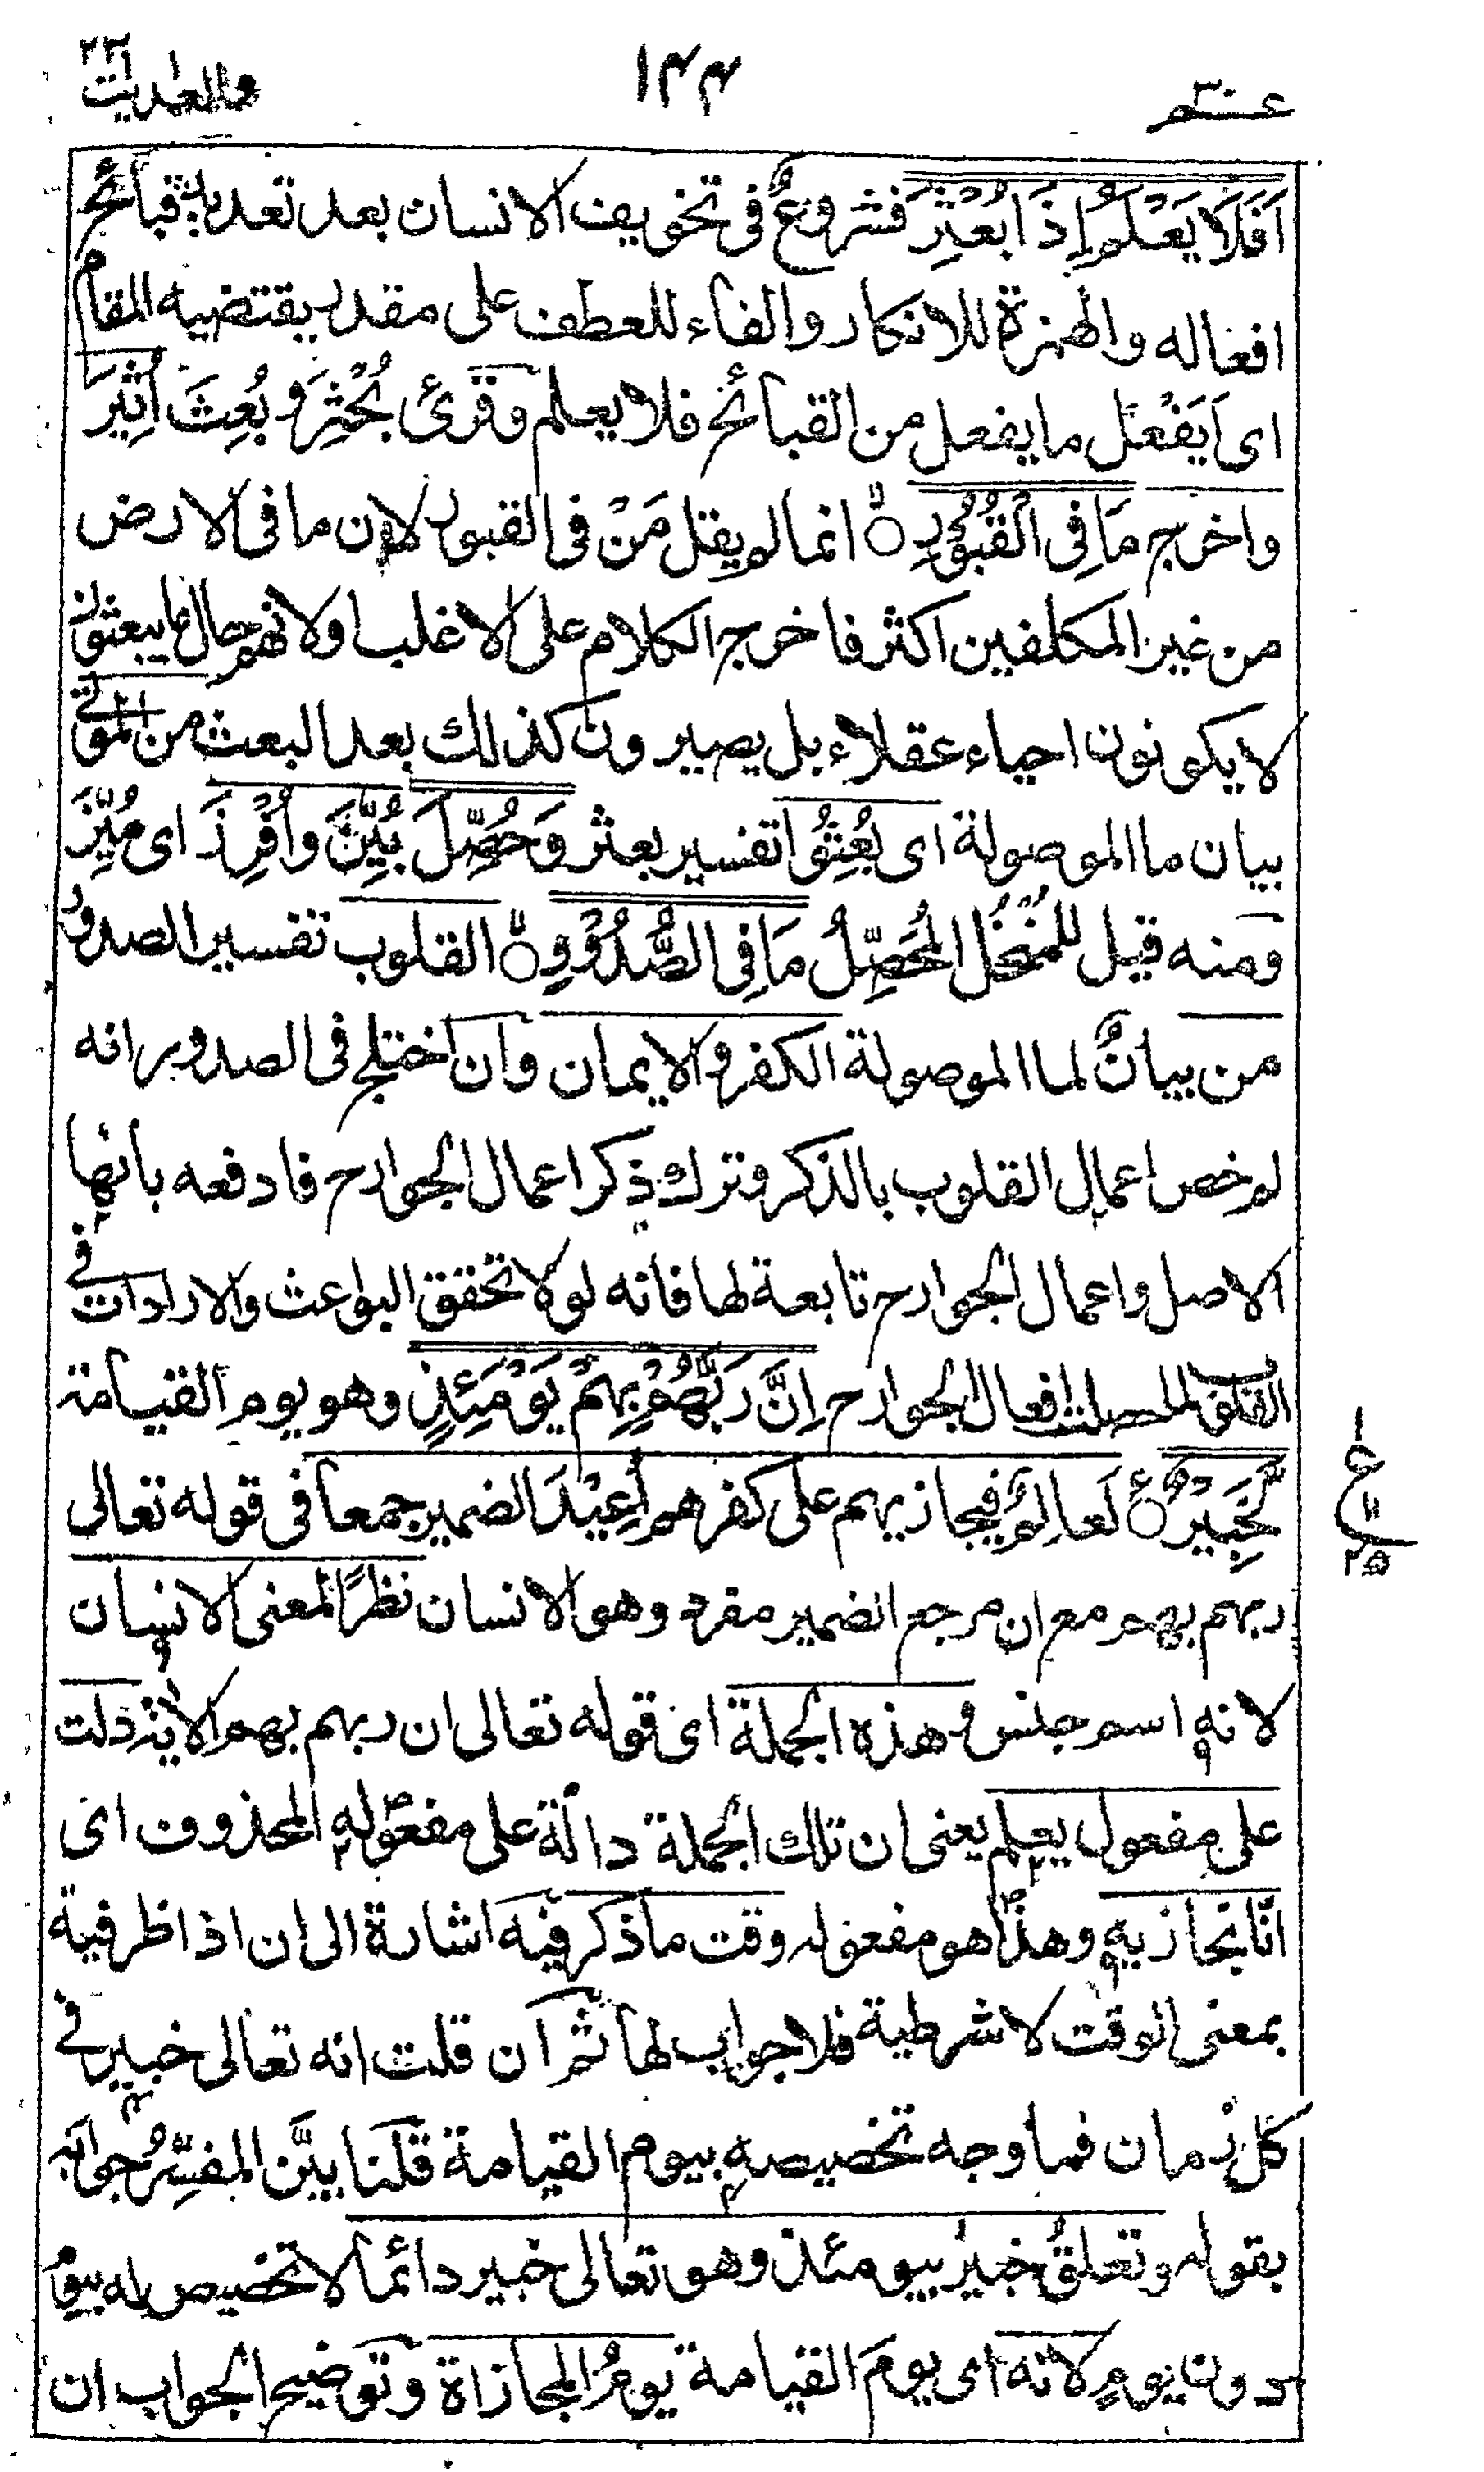 عـــم ٣٠
١٤٤
والعديات
٢٣
اَفَلَا يَعْلَمُ اِذَا بُعْثِرَ فشروعٌ فى تخويف الانسان بعد تعديد قبائح
افعاله والهمزة للانكار والفاء للعطف على مقدر يقتضيه المقام
اى اَيَفْعَل ما يفعل من القبائح فلا يعلم وقرئ بُحْثِرَ و بُعِثَ اُثِيْرَ
واخرج مَا فِى الْقُبُوْرِ انما لم يقل مَنْ فى القبور لان ما فى الارض
من غير المكلفين اكثر فاخرج الكلام على الاغلب ولانهم حال ما يبعثون
لا يكونون احياء عقلاء بل يصيرون كذلك بعد البعث من الموتى
بيان ما الموصولة اى بُعِثُوا تفسير بعثر وَحُصِّلَ بُيِّنَ وافْرِزَ اى مُيِّزَ
ومنه قيل للمُنْخُل المُحَصِّلُ مَا فِى الصُّدُوْرِ القلوب تفسير الصدور
من بيانٌ لما الموصولة الكفر والايمان وان اختلج فى الصدور انه
لم خص اعمال القلوب بالذكر وترك ذكر اعمال الجوارح فادفعه بانها
الاصل واعمال الجوارح تابعة لها فانه لولا تحقق البواعث والارادات فى
القلوب لما حصلت افعال الجوارح اِنَّ رَبَّهُمْ بِهِمْ يَوْمَئِذٍ وهو يوم القيامة
لَّخَبِيْرٌ لَعالِمٌ فيجازيهم على كفرهم اُعِيْدَ الضمير جمعا فى قوله تعالى
ع
١١
٢٥
ربهم بهم مع ان مرجع الضمير مفرد وهو الانسان نظرًا لمعنى الانسان
لانه اسم جنس وهذه الجملة اى قوله تعالى ان ربهم بهم الاية دلت
على مفعول يعلم يعنى ان تلك الجملة دالة على مفعوله المحذوف اى
انّا نجازيه وهذا هو مفعوله وقت ما ذكر فيه اشارة الى ان اذا ظرفية
بمعنى الوقت لا شرطية فلا جواب لها ثم ان قلت انه تعالى خبير فى
كل زمان فما وجه تخصيصه بيوم القيامة قلنا بيَّن المفسِّرُ جوابه
بقوله وتعلقُ خبيرٌ بيومئذ وهو تعالى خبير دائما لا تخصيص له بيومٍ
دون يومٍ لانه اى يومَ القيامة يومُ المجازاة وتوضيح الجواب ان